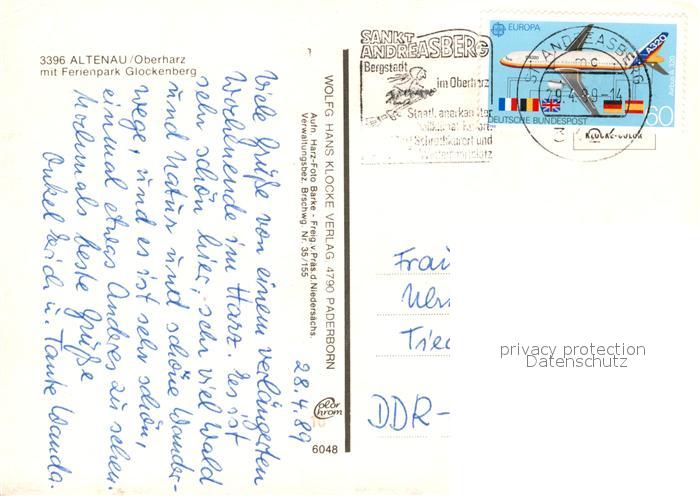 3396 ALTENAU/Oberharz
mit Ferienpark Glockenberg
28.4.89
Viele Grüße von einem verlängerten
Wochenende im Harz. Es ist
sehr schön hier, sehr viel Wald
und Natur und schöne Wander-
wege, und es ist sehr schön,
einmal etwas Anderes zu sehen.
Nochmals beste Grüße
Onkel u. Tante Wanda.
WOLFG HANS KLOCKE VERLAG 4790 PADERBORN
Aufn. Harz-Foto Barke - Freig. v. Präs. d. Niedersächs.
Verwaltungsbez. Brschwg. Nr. 35/155
color
chrom
6048
SANKT
ANDREASBERG
Bergstadt
im Oberharz
Staatl. anerkannter
Schrothkurort und
Wintersportplatz
ST ANDREASBERG
mc
29.4.89-14
EUROPA
A320
Airbus A320
60
DEUTSCHE BUNDESPOST
KLOCKE-COLOR
Frau
Ulri
Tried
DDR-
privacy protection
Datenschutz